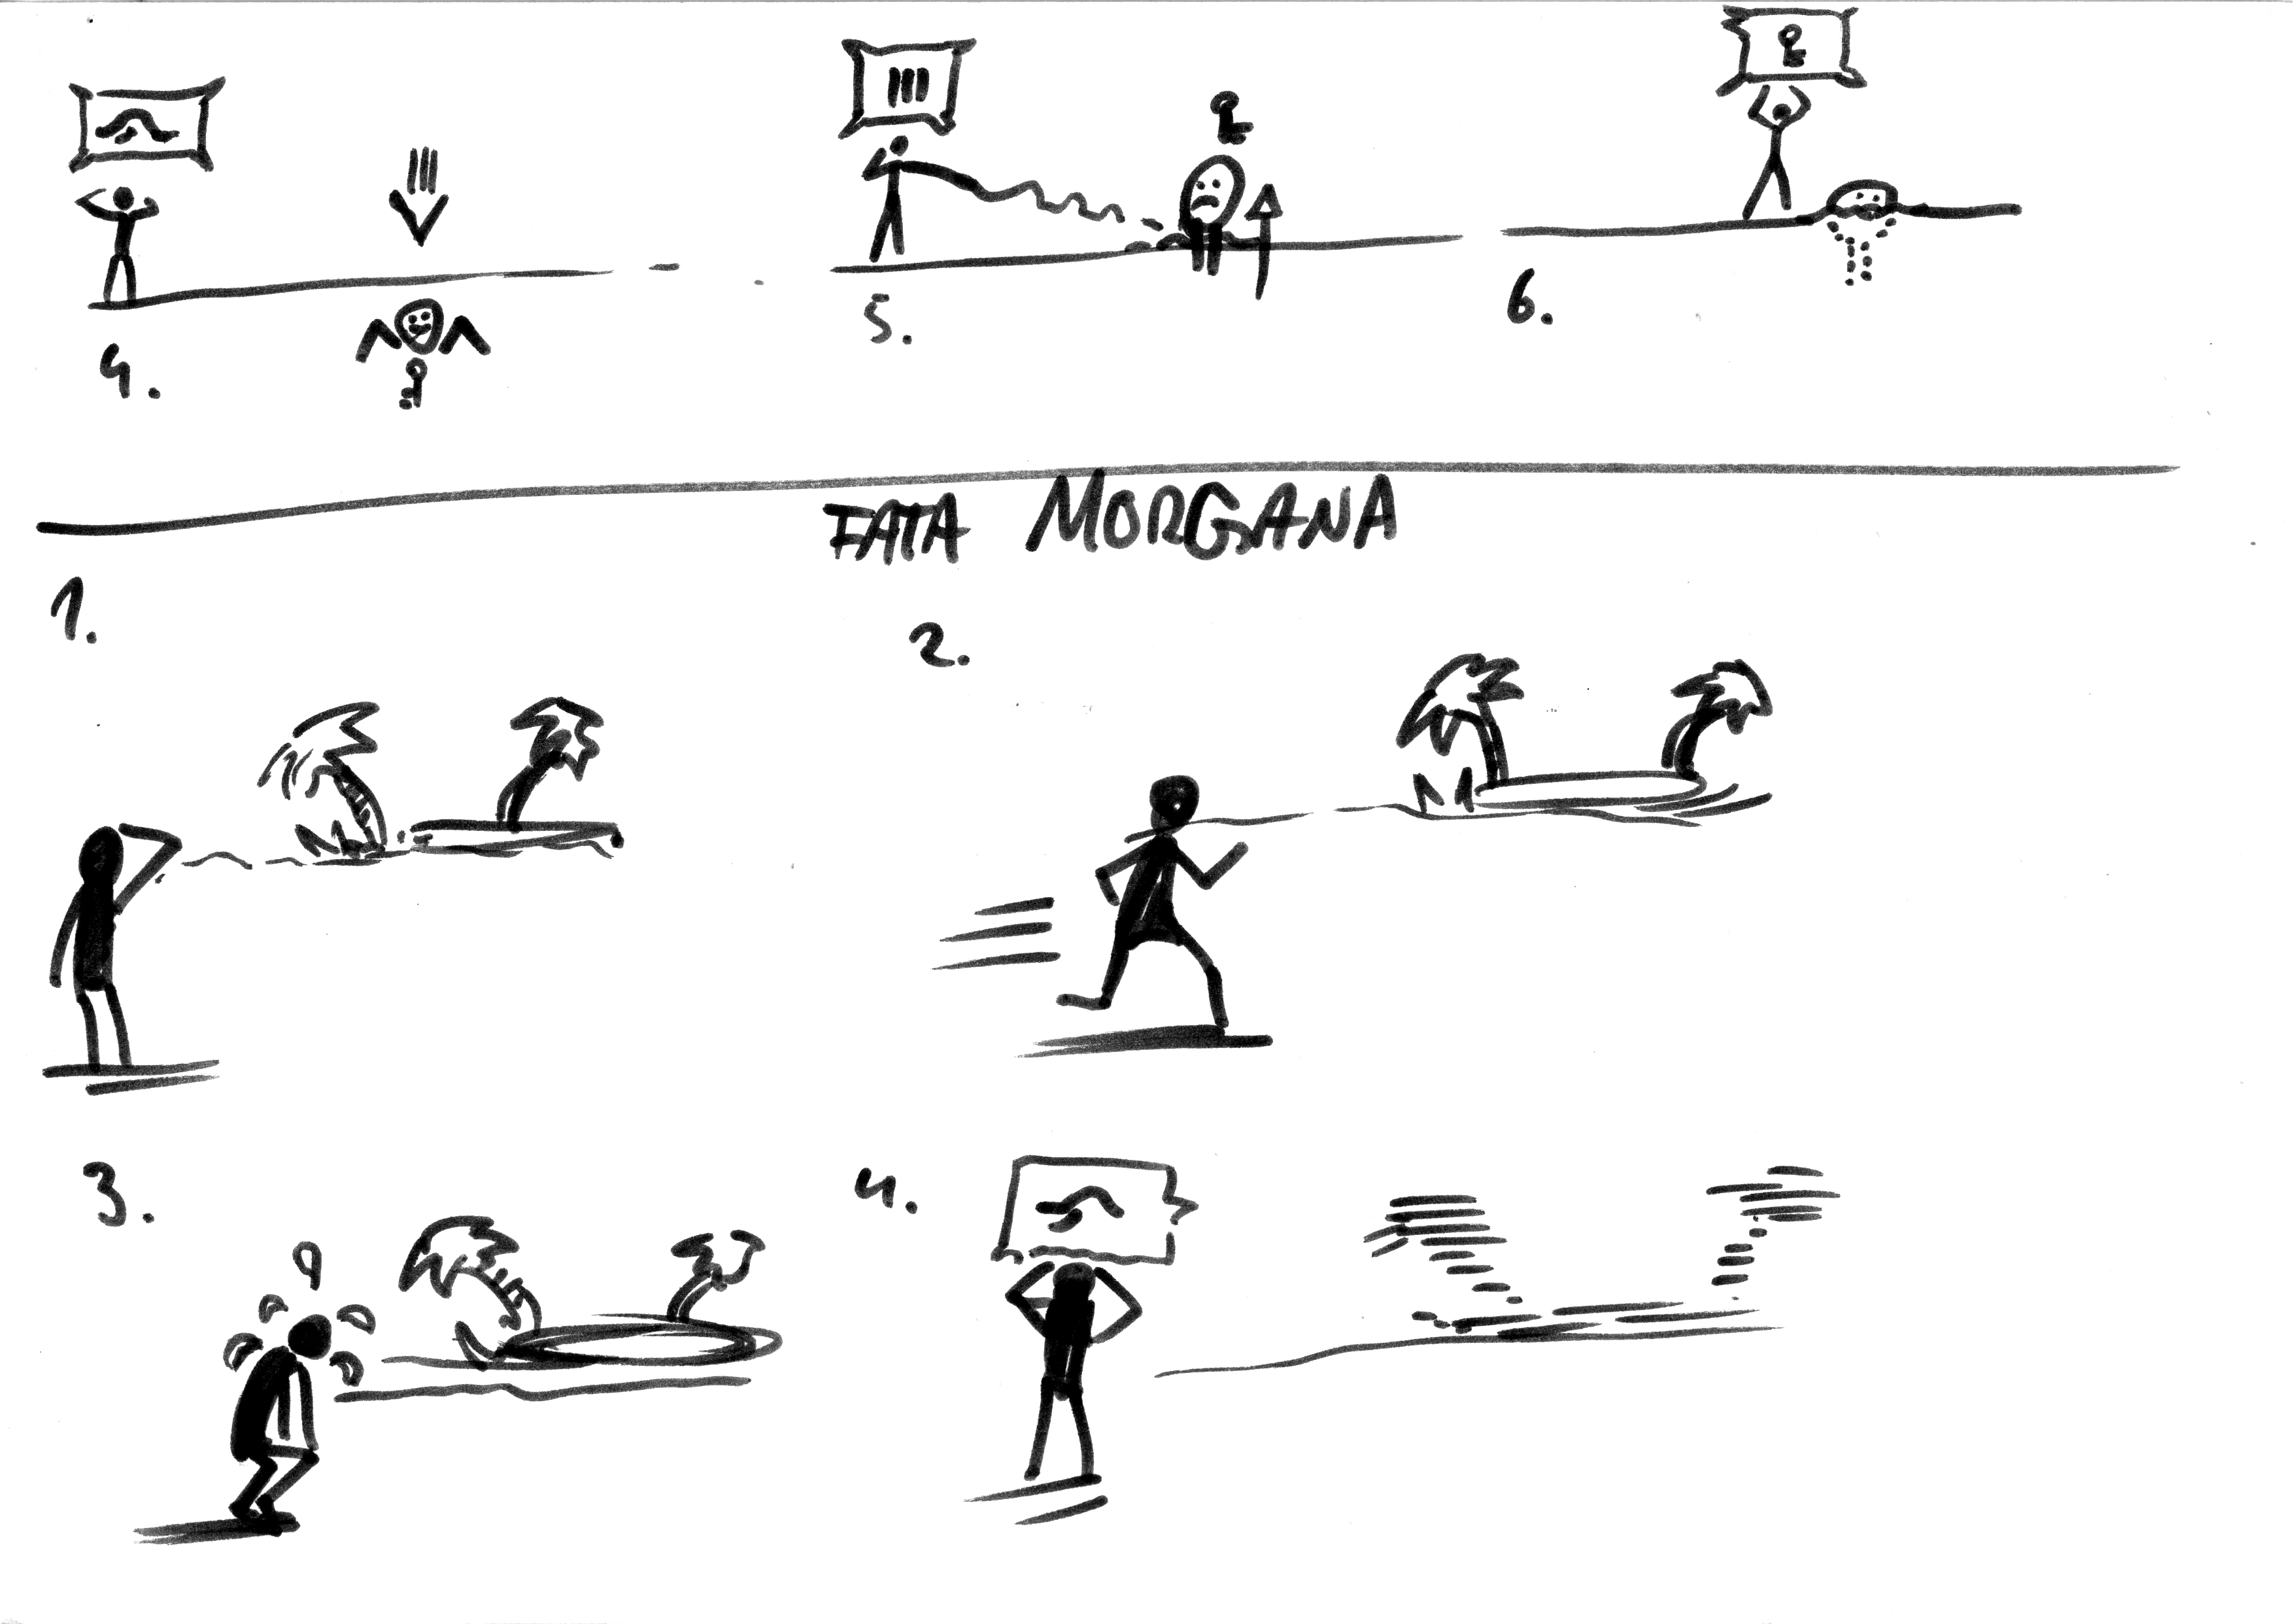 4.
5.
6.
FATA MORGANA
1.
2.
3.
4.